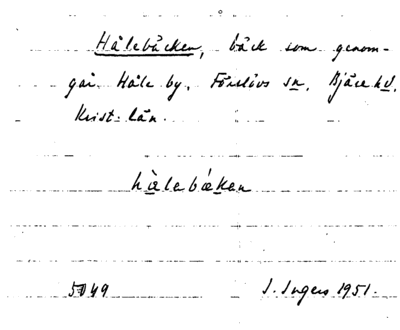 Hålebäcken, bäck som genom-
går Håle by, Förslövs sn, Bjäre hd,
Krist. län.
hålebäken
5049 I. Ingers 1951.